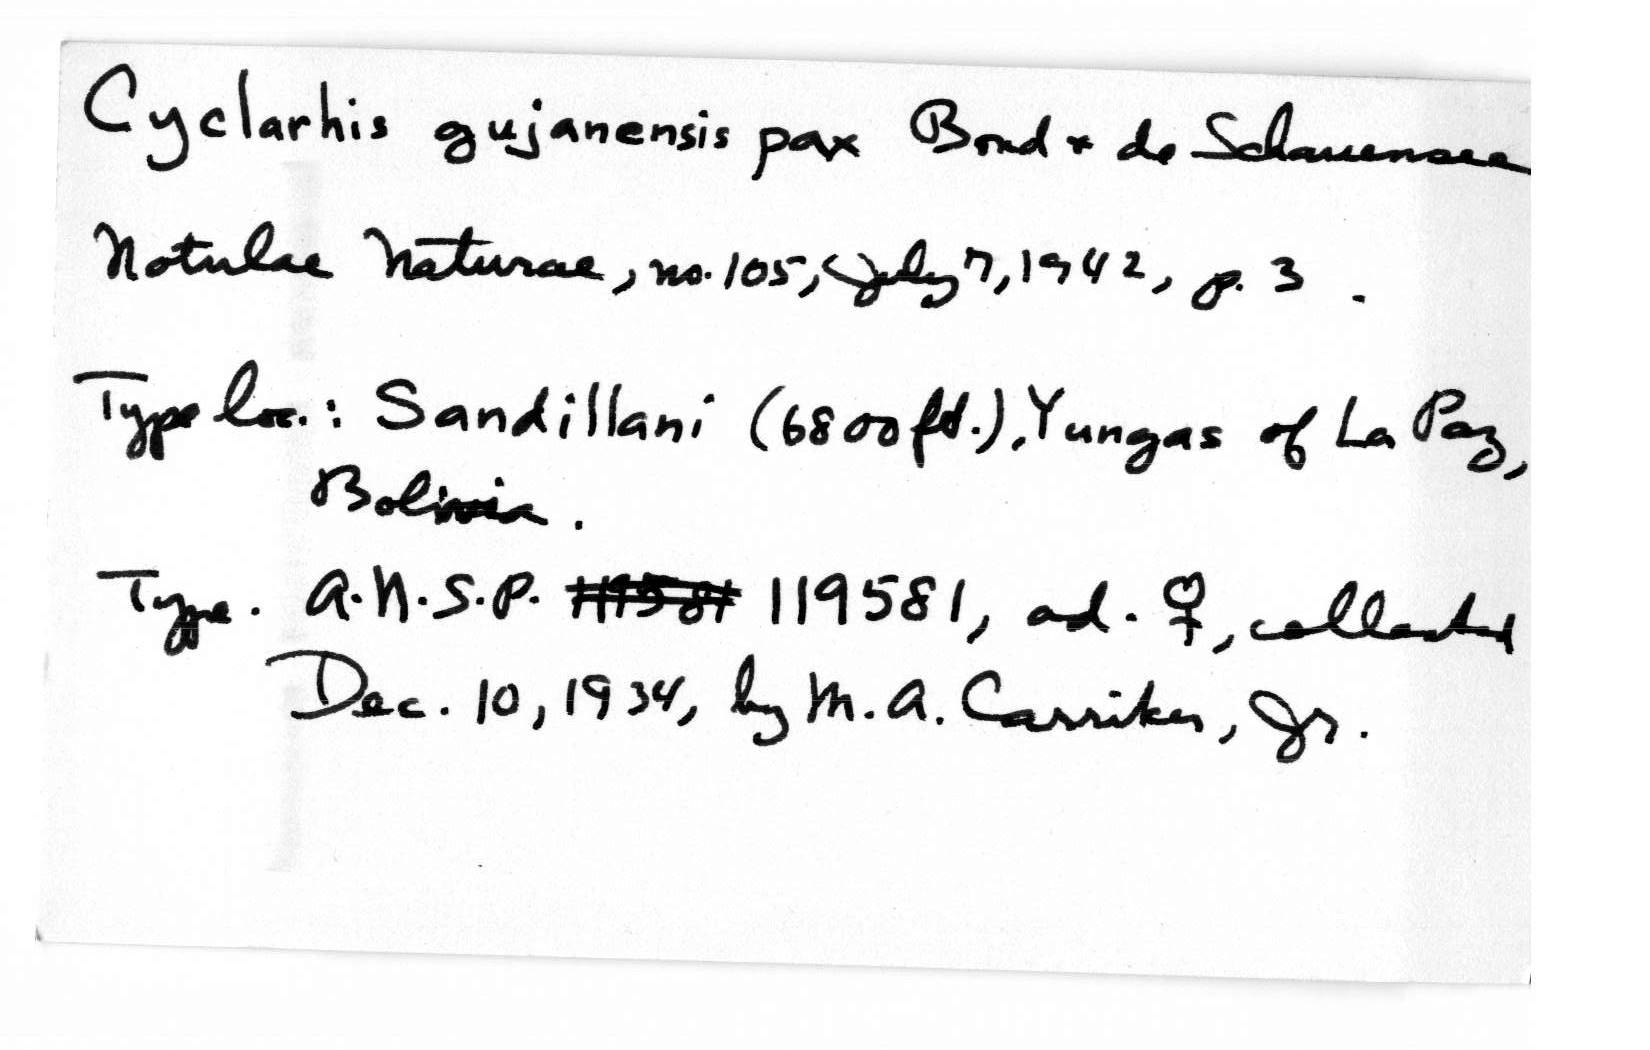 Cyclarhis gujanensis pax Bond & de Schauensee
Notulae Naturae, no. 105, July 7, 1942, p. 3.
Type loc.: Sandillani (6800 ft.), Yungas of La Paz,
Bolivia.
Type. A.N.S.P. 119581, ad. ♀, collected
Dec. 10, 1934, by M. A. Carriker, Jr.